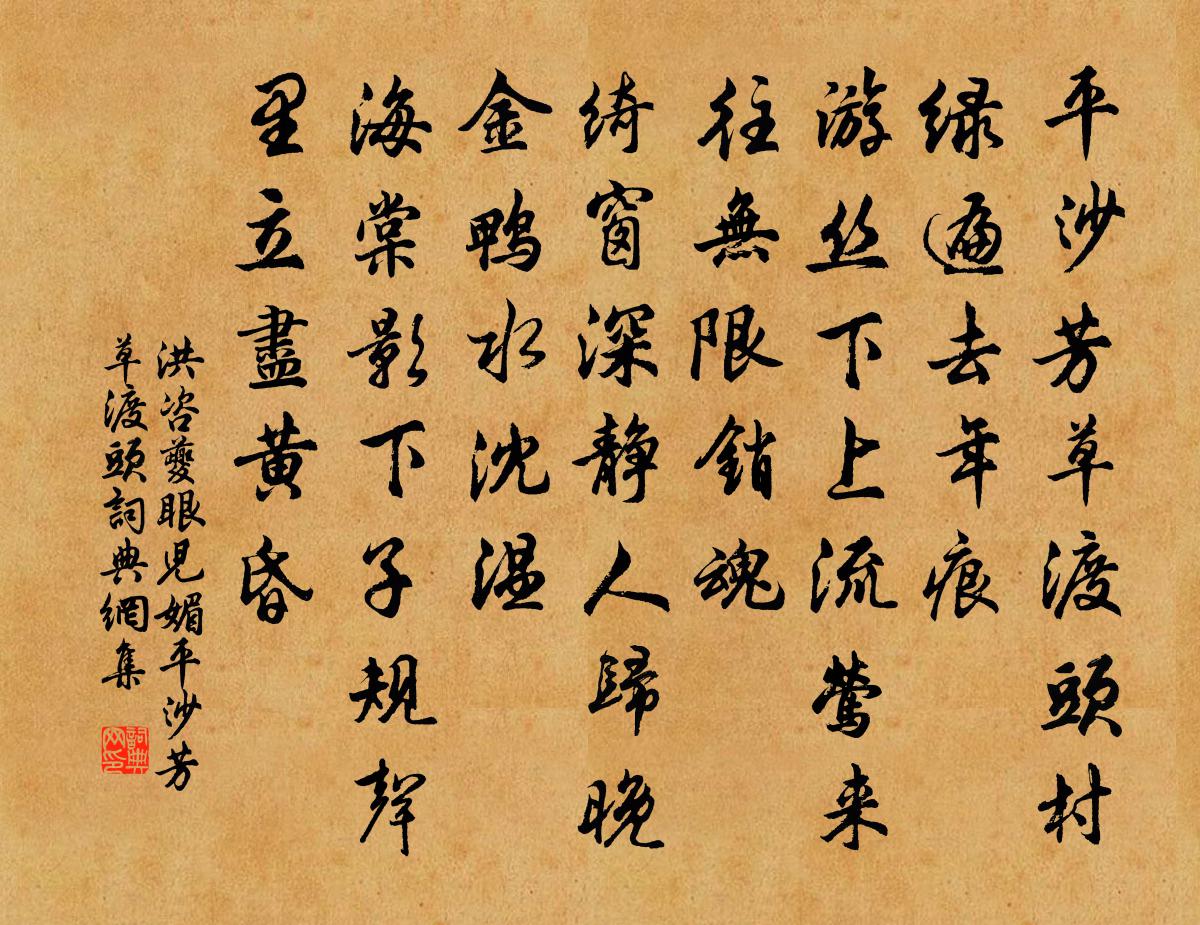 平沙芳草渡頭村
绿遍去年痕
游丝下上流莺来
往無限銷魂
绮窗深静人歸晚
金鴨水沈温
海棠影下子规聲
里立盡黄昏
洪咨夔眼兒媚平沙芳
草渡頭詞典網集
詞典网印